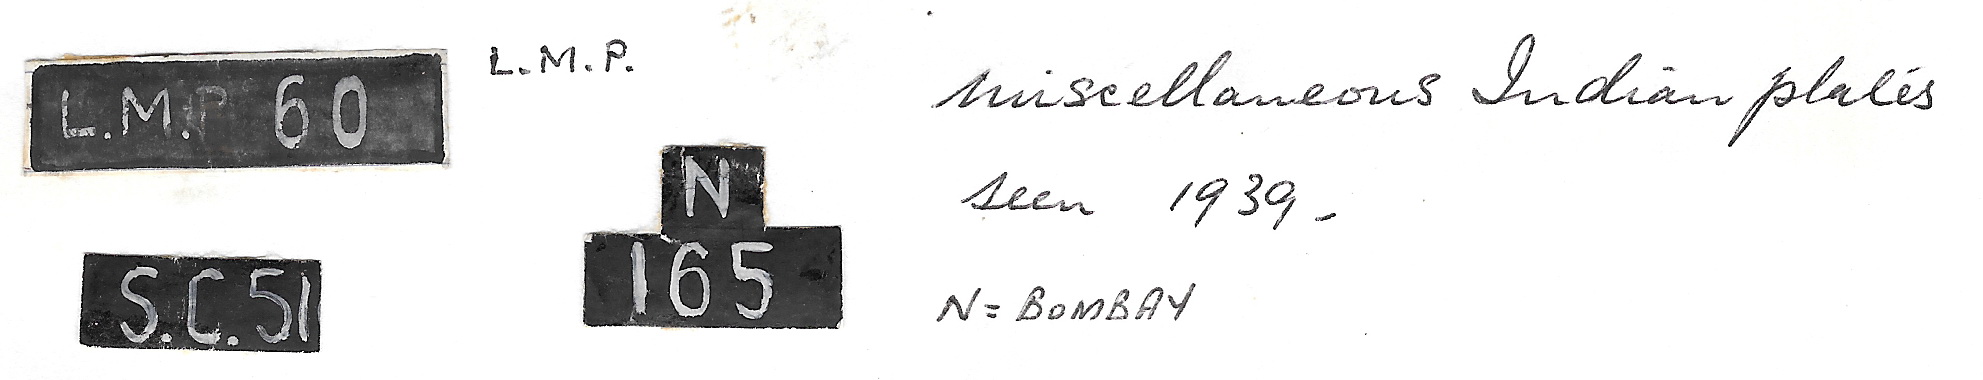 L.M.P 60
L.M.P.
S.C.51
N
165
miscellaneous Indian plates
seen 1939-
N = BOMBAY